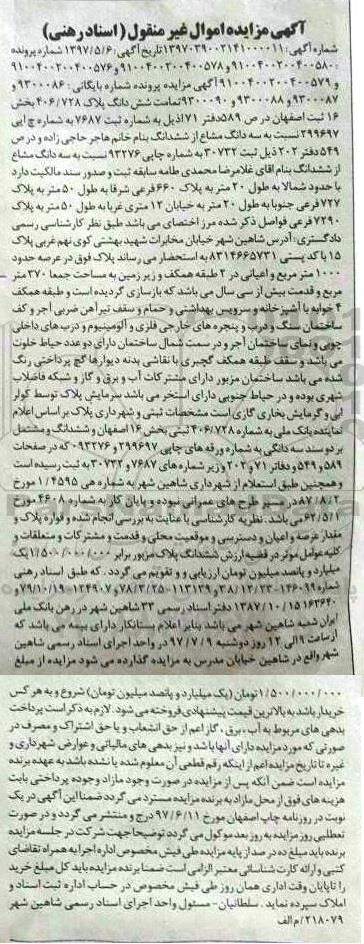 آگهی مزایده اموال غیر منقول (اسناد رهنی)
شماره آگهی: ۱۳۹۷۰۳۹۰۰۲۱۴۱۰۰۰۰۱۱ تاریخ آگهی: ۱۳۹۷/۵/۶ شماره پرونده
۹۱۰۰۴۰۰۲۰۰۴۰۰۵۸۰: ۹۱۰۰۴۰۰۲۰۰۴۰۰۵۷۸ و ۹۱۰۰۴۰۰۲۰۰۴۰۰۵۷۶
و ۹۱۰۰۴۰۰۲۰۰۴۰۰۵۷۹ آگهی مزایده پرونده شماره بایگانی: ۹۳۰۰۰۸۶ و
۹۳۰۰۰۸۷ و ۹۳۰۰۰۸۸ و ۹۳۰۰۰۹۰ تمامت شش دانگ پلاک ۴۰۶/۷۲۸ بخش
۱۶ ثبت اصفهان در ص ۵۸۹ دفتر ۷۱ ذیل به شماره ثبت ۷۶۸۷ به شماره چاپی
۲۹۹۶۹۷ نسبت به سه دانگ مشاع از ششدانگ بنام خانم هاجر حاجی زاده و در ص
۵۴۹ دفتر ۲۰۲ ذیل ثبت ۳۰۷۳۲ به شماره چاپی ۹۳۲۷۶ نسبت به سه دانگ مشاع
از ششدانگ بنام اقای غلامرضا محمدی طامه سابقه ثبت و صدور سند مالکیت دارد
با حدود شمالا به طول ۲۰ متر به پلاک ۶۶۰ فرعی شرقا به طول ۵۰ متر به پلاک
۷۲۷ فرعی جنوبا به طول ۲۰ متر به خیابان ۱۲ متری غربا به طول ۵۰ متر به پلاک
۷۲۹ فرعی فواصل ذکر شده مرز اختصای می باشد طبق نظر کارشناسی رسمی
دادگستری: آدرس شاهین شهر خیابان مخابرات شهید بهشتی کوی نهم غربی پلاک
۱۵ با کد پستی ۸۳۱۴۶۶۵۷۳۱ به استحضار می رساند پلاک فوق در عرصه حدود
۱۰۰۰ متر مربع و اعیانی در ۲ طبقه همکف و زیر زمین به مساحت جمعا ۲۷۰ متر
مربع و قدمت بیش از سی سال می باشد که بازسازی گردیده است و طبقه همکف
۴ خوابه با آشپزخانه و سرویس بهداشتی و حمام و سقف تیرآهن ضربی آجر و کف
ساختمان سنگ و درب و پنجره های خارجی فلزی و آلومینیوم و دربهای داخلی
چوبی و نمای ساختمان آجر و در سمت شمال ساختمان دارای دو عدد حیاط خلوت
می باشد و سقف طبقه همکف گچبری با نقاشی بدنه دیوارها گچ پرداختی رنگ
شده می باشد ساختمان مزبور دارای مشترکات آب و برق و گاز و شبکه فاضلاب
شهری بوده و در حیاط جنوبی دارای استخر می باشد سرمایش پلاک توسط کولر
ابی و گرمایش بخاری گازی است مشخصات ثبتی و شهرداری پلاک بر اساس اعلام
نماینده بانک ملی به شماره ۴۰۶/۷۲۸ ثبتی بخش ۱۶ اصفهان و ششدانگ و مشتمل
بر دو سند سه دانگی به شماره ورقه های چاپی ۲۹۹۶۹۷ و ۰۹۳۲۷۶ که در صفحات
۵۸۹ و ۵۴۹ و دفاتر ۷۱ و ۲۰۲ و زیر شماره های ۷۶۸۷ و ۳۰۷۳۲ به ثبت رسیده است
و همچنین طبق استعلام از شهرداری شاهین شهر به شماره هی ۱/۴۵۹۵ مورخ
۸۷/۸/۲ در مسیر طرح های عمرانی نبوده و پایان کار به شماره ۴۶۰۸ مورخ
۶۲/۵/۱ می باشد. نظریه کارشناسی با عنایت به بررسی انجام شده و قواره پلاک و
مقدار عرصه و اعیان و دسترسی و موقعیت محلی و قدمت و مشترکات و متعلقات و
کلیه عوامل موثر در قضیه ارزش ششدانگ پلاک مزبور برابر ۱/۵۰۰/۰۰۰/۰۰۰ یک
میلیارد و پانصد میلیون تومان ارزیابی و و تقویم می گردد. که طبق اسناد رهنی
شماره ۱۴۶۰۹۹-۳۸/۱۲/۲۳ و ۱۱۳۱۲۹-۷۸/۳/۲۵ و ۱۲۴۹۰۷-۷۹/۱۰/۱۹ و
۱۶۳۶۴۰-۱۳۸۷/۱۰/۱۵ دفتر اسناد رسمی ۳۳ شاهین شهر در رهن بانک ملی
ایران شعبه شاهین شهر می باشد بنابر اعلام بستانکار دارای بیمه می باشد که
از ساعت ۹ الی ۱۲ روز دوشنبه ۹۷/۷/۹ در واحد اجرای اسناد رسمی شاهین
شهر واقع در شاهین خیابان مدرس به مزایده گذارده می شود مزایده از مبلغ
۱/۵۰۰/۰۰۰/۰۰۰ تومان (یک میلیارد و پانصد میلیون تومان) شروع و به هر کس
خریدار باشد به بالاترین قیمت پیشنهادی فروخته می شود. لازم به ذکر است پرداخت
بدهی های مربوط به آب، برق، گاز اعم از حق انشعاب و یا حق اشتراک و مصرف در
صورتی که مورد مزایده دارای آنها باشد و نیز بدهی های مالیاتی و عوارض شهرداری و
غیره تا تاریخ مزایده اعم از اینکه رقم قطعی آن معلوم شده یا نشده باشد به عهده برنده
مزایده است ضمن آنکه پس از مزایده در صورت وجود مازاد وجوه پرداختی بابت
هزینه های فوق از محل مازاد به برنده مزایده مسترد می گردد ضمنا این آگهی در یک
نوبت در روزنامه چاپ اصفهان مورخ ۹۷/۶/۱۱ درج و منتشر می گردد و در صورت
تعطلیی روز مزایده به روز بعد موکول می گردد توضیحا جهت شرکت در جلسه مزایده
برنده باید مبلغ ده در صد از پایه مزایده طی فیش مخصوص اداره اجرا به همراه تقاضای
کتبی و ارائه کارت شناسائی معتبر الزامی است ضمنا برنده مزایده باید کل مبلغ خرید
را تا پایان وقت اداری همان روز طی فیش مخصوص در حساب اداره ثبت اسناد و
املاک سپرده نماید. سلطانیان- مسئول واحد اجرای اسناد رسمی شاهین شهر
۲۱۸۰۷۹/ م الف